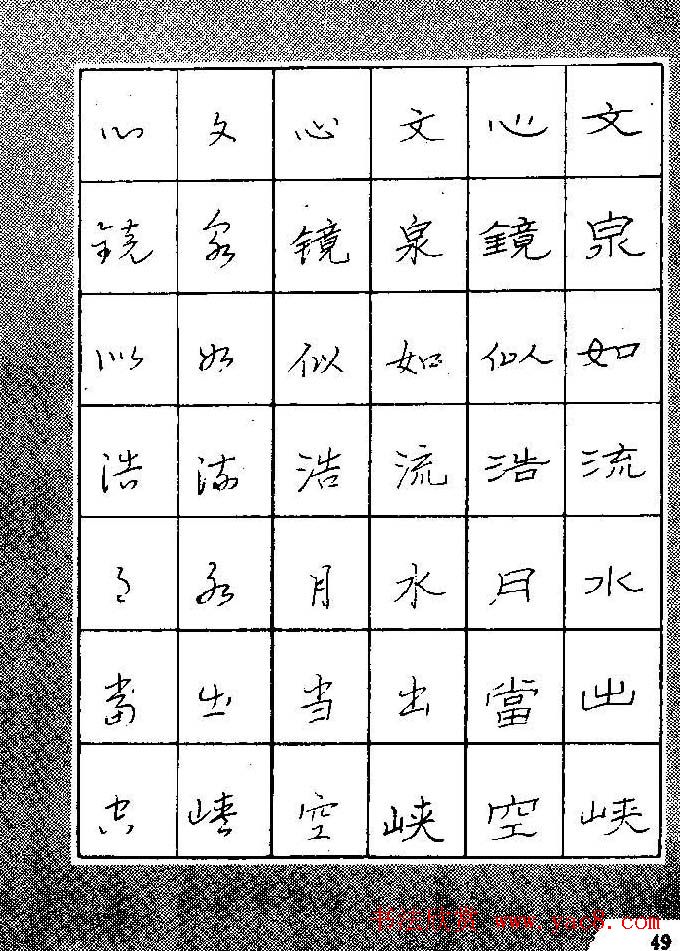 文泉如流水出峡
心鏡似浩月當空
文泉如流水出峡
心镜似浩月当空
文泉如流水出峡
心镜似浩月当空
书法欣赏 www.yac8.com
49